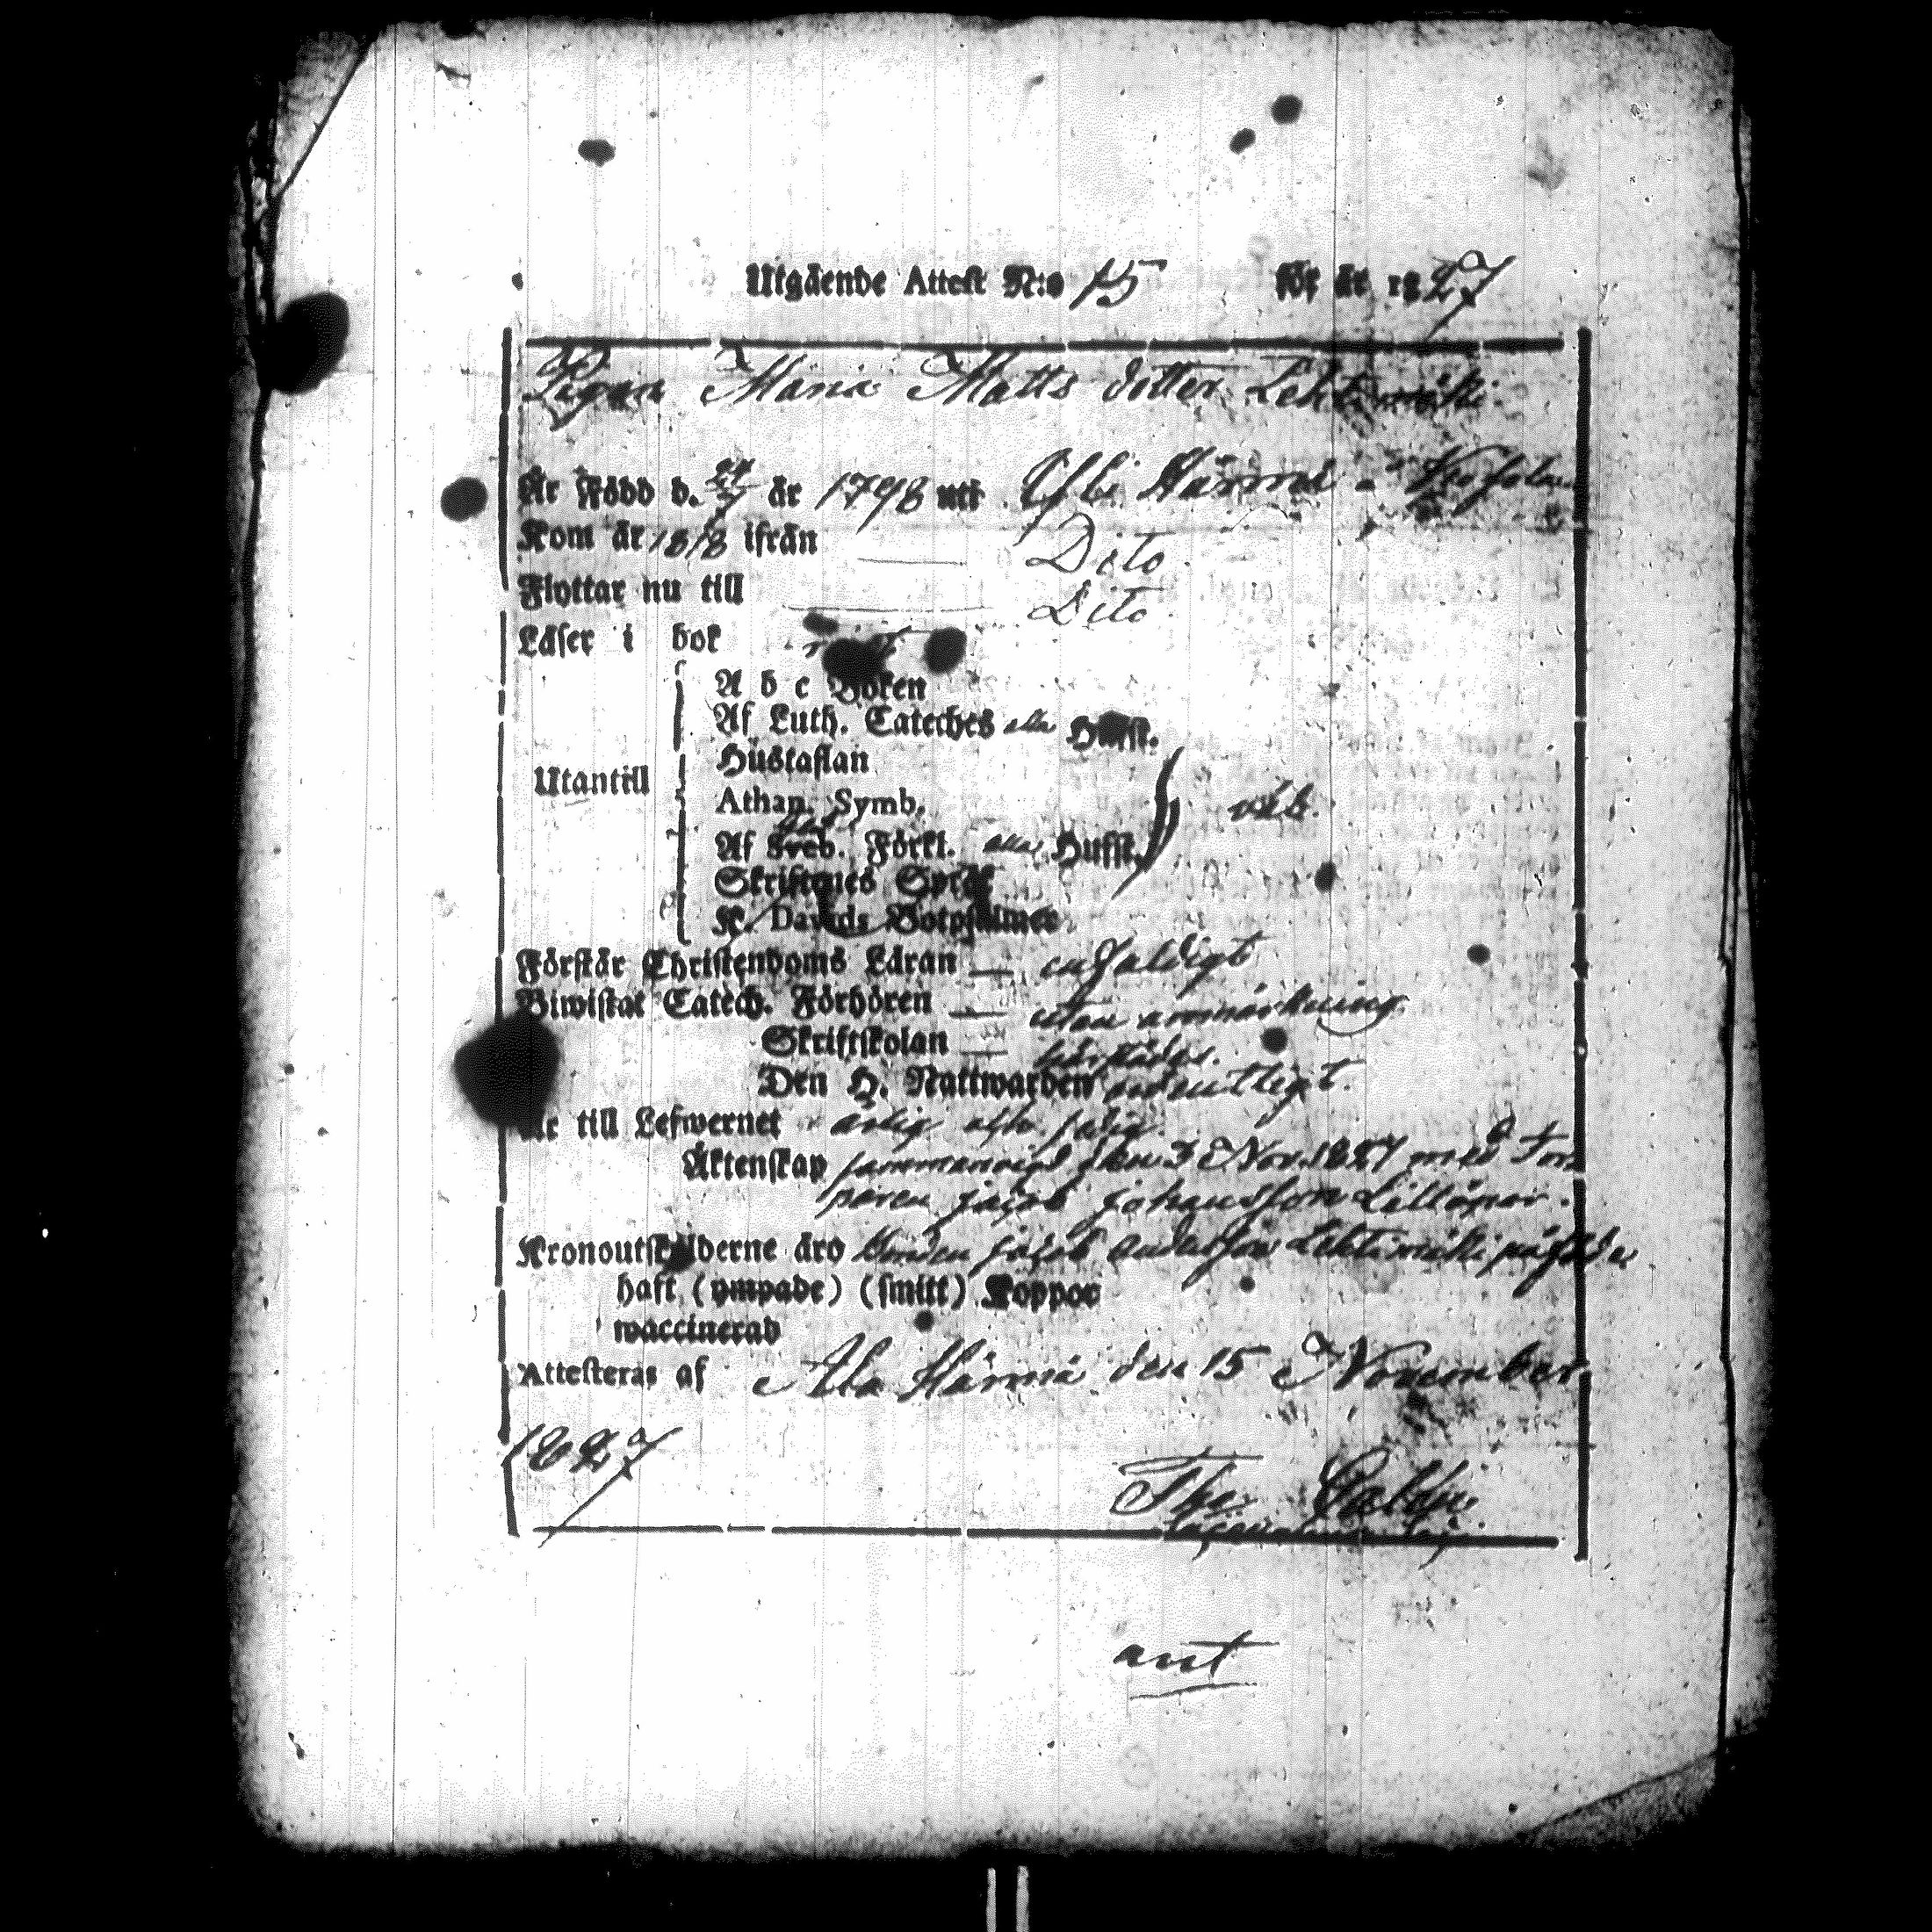 Utgående Attest N:o 15 för år 1827
Pigan Maria Matts dotter Lehtimäki
Är Född d. 24/7 år 1798 uti Ylihärmä
Kom år 1818 ifrån Dito
Flyttar nu till Dito
Läser i bok
A b c Boken
Af Luth. Cateches alla Hufst.
Hustaflan
Utantill
Athan. Symb. väl.
Af Sveb. Förkl. alla Hufst.
Skriftenes Språk
K. Davids Botpsalmer
Förstår Christendoms Läran — enfaldigt
Biwistat Catech. Förhören — utan anmärkning
Skriftskolan —
Den H. Nattwarden ordentligt.
Är till Lefwernet ärlig
Äktenskap sammanvigd den 3 Nov. 1827 med Tor
paren Jacob Johansson
Kronoutskylderne äro Bonden Jacob Andersson Lehtimäki påförde
haft (ympade) (smitt) Koppor
waccinerad
Attesteras af Ala Härmä den 15 November
1827
ant